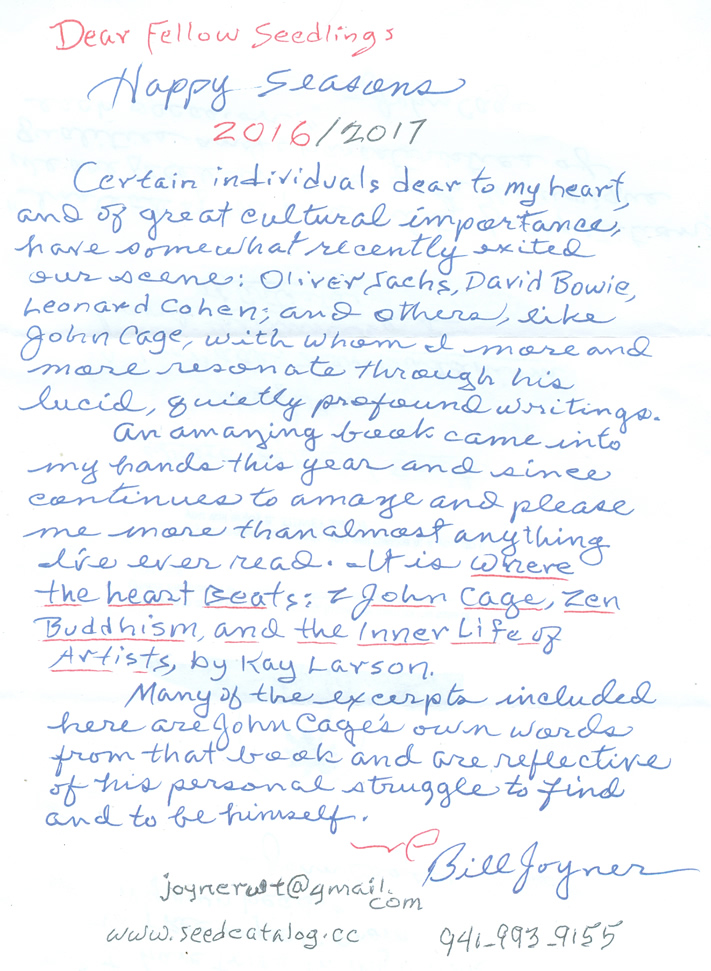 Dear Fellow Seedlings
Happy Seasons
2016/2017
Certain individuals dear to my heart,
and of great cultural importance,
have somewhat recently exited
our scene: Oliver Sachs, David Bowie,
Leonard Cohen; and others, like
John Cage, with whom I more and
more resonate through his
lucid, quietly profound writings.
An amazing book came into
my hands this year and since
continues to amaze and please
me more than almost anything
I've ever read. It is Where
the heart Beats: John Cage, Zen
Buddhism, and the Inner Life of
Artists, by Kay Larson.
Many of the excerpts included
here are John Cage's own words
from that book and are reflective
of his personal struggle to find
and to be himself.
Bill Joyner
@gmail.
com
www.seedcatalog.cc 941-993-9155